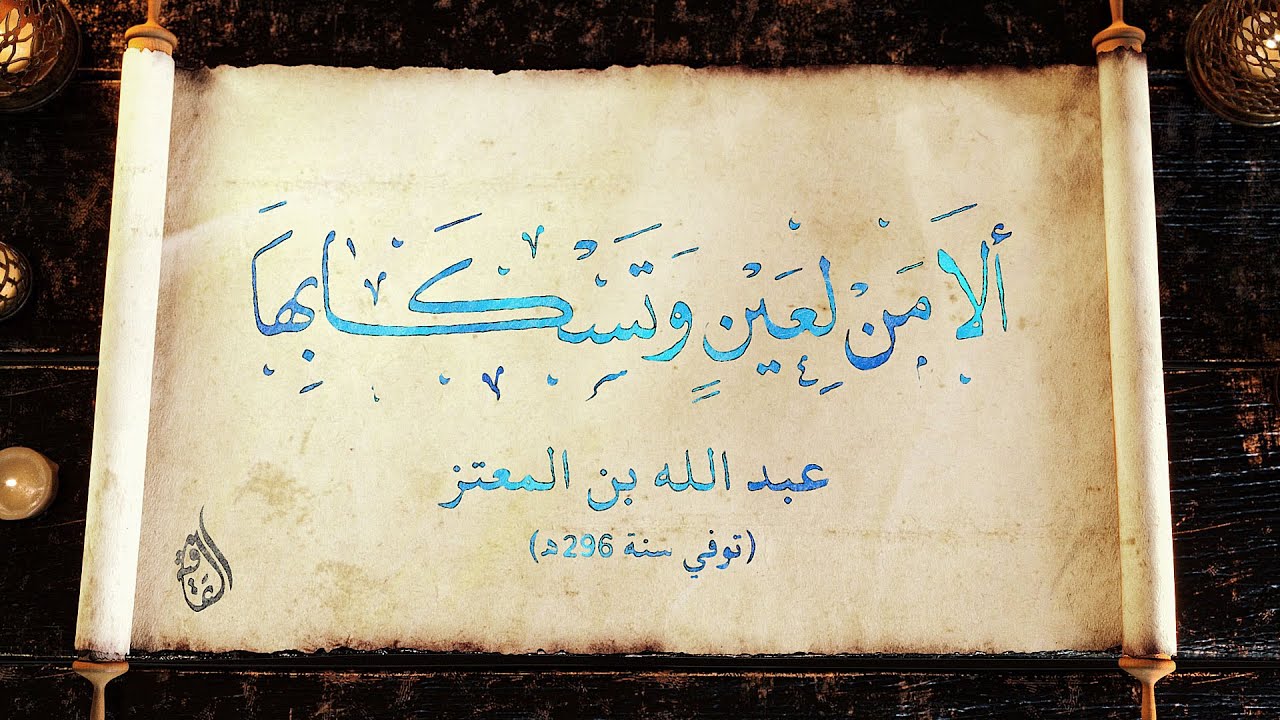 ألا مَنْ لِعَيْنٍ وَتَسْكَابِهَا
عبد الله بن المعتز
(توفي سنة 296هـ)